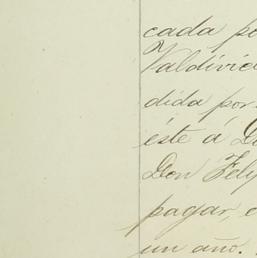 cada po
Valdivie
dida por
éste á D
Don Feli
pagar, e
un año.